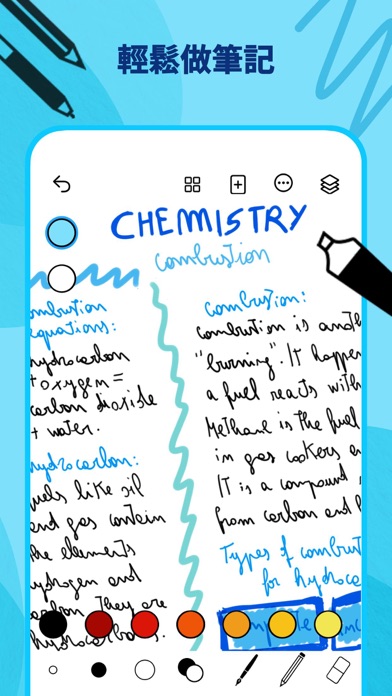 輕鬆做筆記
CHEMISTRY
combustion
ombustion
equations:
hydrocarbon
+ oxygen =
carbon dioxide
+ water.
hydrocarbon:
uels like oil
and gas contain
the elements
hydrogen and
carbon. They are
hydrocarbons.
Combustion:
Combustion is anoth
"burning". It happen
a fuel reacts with
Methane is the fuel
in gas cookers an
It is a compound
from carbon and h
Types of combust
for hydroca